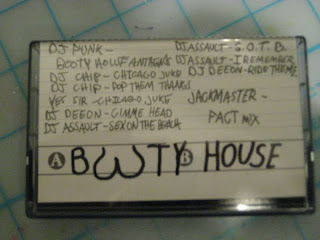 DJ PUNK -
BOOTY HOUSE ANTHEMS
DJ CHIP - CHICAGO JUKE
DJ CHIP - POP THEM THANGS
YES SIR - CHICAGO JUKE
DJ DEEON - GIMME HEAD
DJ ASSAULT - SEX ON THE BEACH
DJ ASSAULT - S.O.T.B.
DJ ASSAULT - I REMEMBER
DJ DEEON - RIDE THEM
JACKMASTER -
PACT MIX
A BOOTY B HOUSE